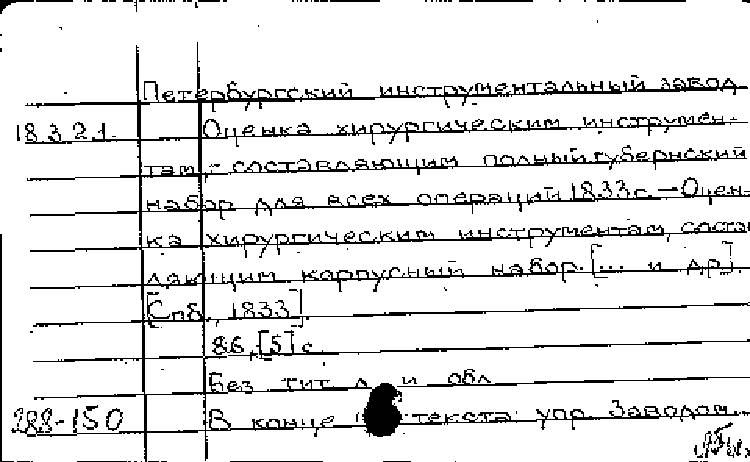 Петербургский инструментальный завод
18.3.2.1. Оценка хирургическим инструмен-
там, составляющим полный губернский
набор для всех операций 1833 г. — Оцен-
ка хирургическим инструментам, состав
ляющим корпусный набор. [... и др].
[Спб., 1833]
86, [5] с.
Без тит. л. и обл.
288-150 В конце текста: упр. Заводом...